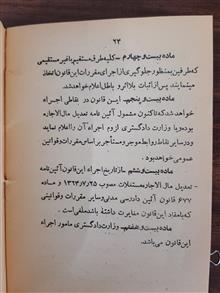 ۲۳
ماده بیست و چهارم - کلیه طرف مستقیم یا غیر مستقیمی
که طرفین بمنظور جلوگیری از اجرای مقررات این قانون اتخاذ
مینمایند پس از اثبات بلااثر و باطل اعلام خواهد شد.
ماده بیست و پنجم - این قانون در نقاطی اجراء
خواهد شد که تاکنون مشمول آئین نامه تعدیل مال الاجاره
بوده و یا وزارت دادگستری لزوم اجراء آن را اعلام نماید
و در سایر نقاط روابط موجر و مستاجر بر اساس مقررات و قوانین
عمومی خواهد بود.
ماده بیست و ششم - از تاریخ اجراء این قانون آئین نامه
تعدیل مال الاجاره مستغلات مصوب ۱۳۲۴/۷/۲۵ و ماده
۶۷۷ قانون آئین دادرسی مدنی و سایر مقررات و قوانینی
که با مفاد این قانون مغایرت داشته باشد ملغی است.
ماده بیست و هفتم - وزارت دادگستری مامور اجراء
این قانون می باشد.